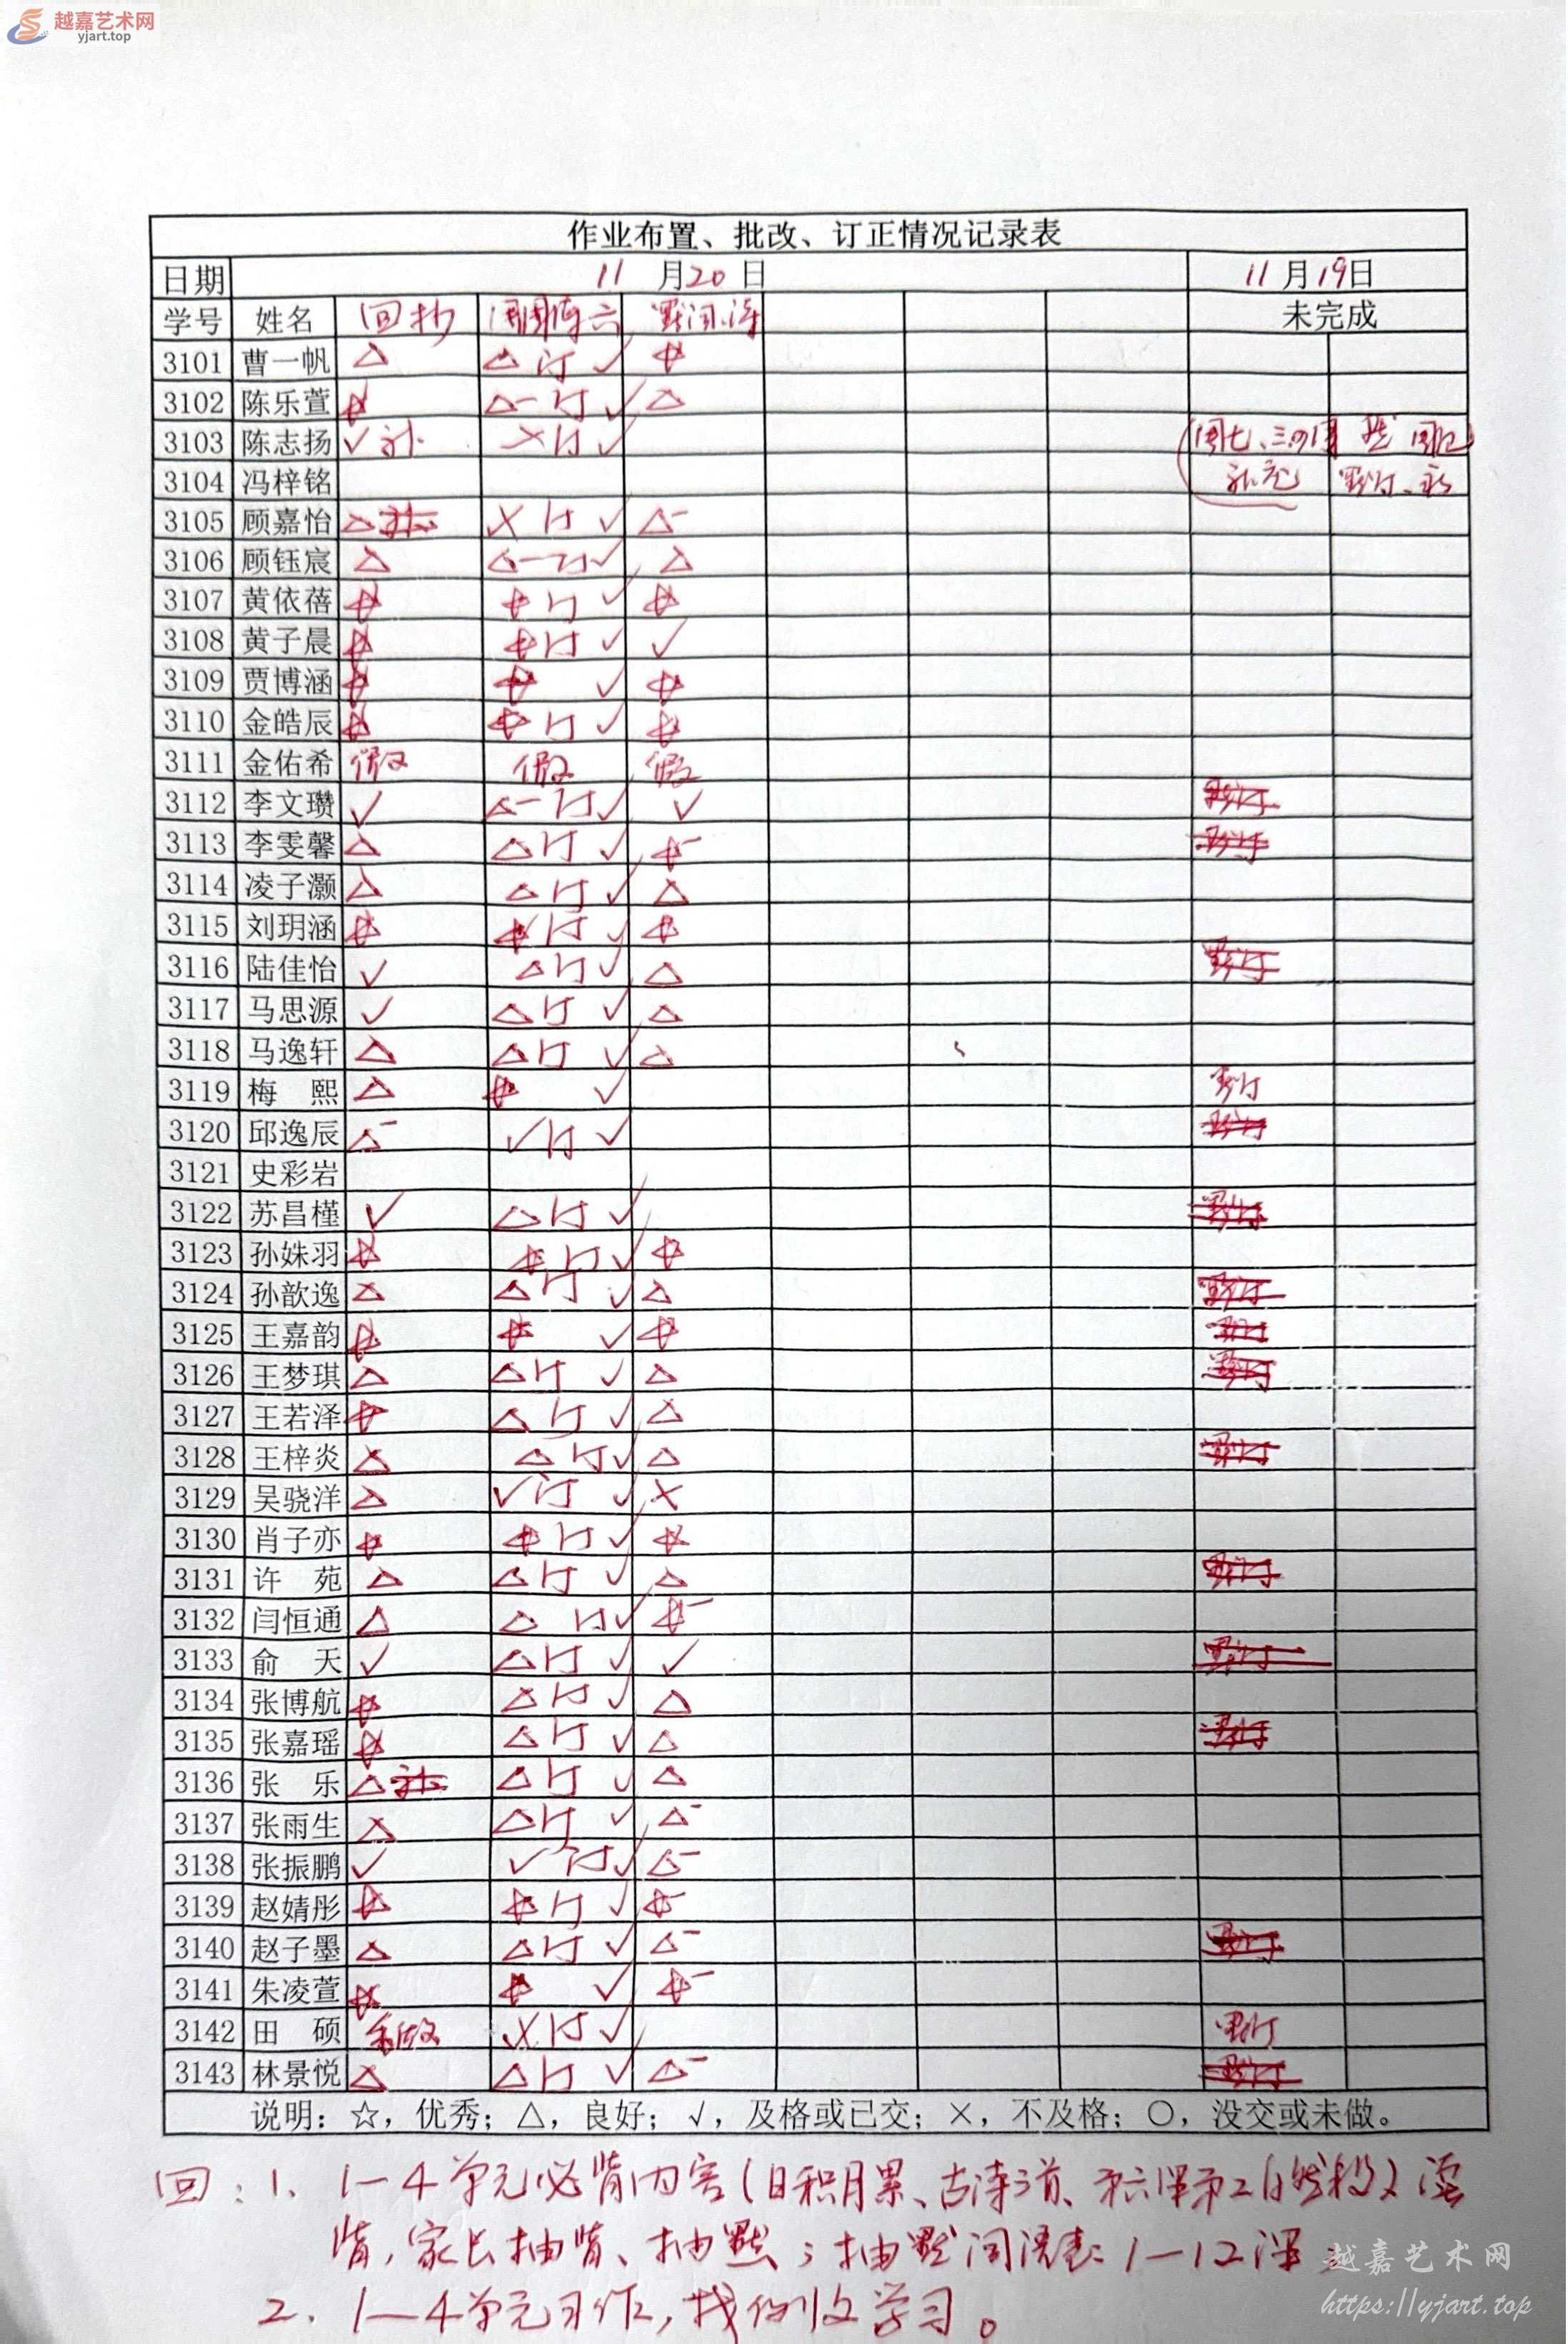 越嘉艺术网
yjart.top
作业布置、批改、订正情况记录表
日期 11 月 20 日 11 月 19 日
学号 姓名 回抄 默词、诗 未完成
3101 曹一帆 △ △ 订 √ ☆
3102 陈乐萱 ☆ △- 订 √ △
3103 陈志扬 √ 补 × 订 √
3104 冯梓铭 补充
3105 顾嘉怡 △ × 订 √ △-
3106 顾钰宸 △ △- 订 √ △
3107 黄依蓓 ☆ ☆ 订 √ ☆
3108 黄子晨 ☆ ☆ 订 √ √
3109 贾博涵 ☆ ☆ √ ☆
3110 金皓辰 ☆ ☆ 订 √ ☆
3111 金佑希 假 假 假
3112 李文瓒 √ △- 订 √ √ 默订
3113 李雯馨 △ △ 订 √ ☆- 默订
3114 凌子灏 △ △ 订 √ △
3115 刘玥涵 ☆ ☆ 订 √ ☆
3116 陆佳怡 √ △ 订 √ △ 默订
3117 马思源 √ △ 订 √ △
3118 马逸轩 △ △ 订 √ △
3119 梅 熙 △ ☆ √ 默订
3120 邱逸辰 △- √ 订 √ 默订
3121 史彩岩
3122 苏昌槿 √ △ 订 √ 默订
3123 孙姝羽 ☆ ☆ 订 √ ☆
3124 孙歆逸 △ △ 订 √ △ 默订
3125 王嘉韵 ☆ ☆ √ ☆ 默订
3126 王梦琪 △ △ 订 √ △ 默订
3127 王若泽 ☆ △ 订 √ △
3128 王梓炎 △ △ 订 √ △ 默订
3129 吴骁洋 △ √ 订 √ ×
3130 肖子亦 ☆ ☆ 订 √ ☆
3131 许 苑 △ △ 订 √ △ 默订
3132 闫恒通 △ △ 订 √ ☆-
3133 俞 天 √ △ 订 √ √ 默订
3134 张博航 ☆ △ 订 √ △
3135 张嘉瑶 ☆ △ 订 √ △ 默订
3136 张 乐 △ 补 △ 订 √ △
3137 张雨生 △ △ 订 √ △-
3138 张振鹏 √ √ 订 √ △-
3139 赵婧彤 ☆ ☆ 订 √ ☆-
3140 赵子墨 △ △ 订 √ △- 默订
3141 朱凌萱 ☆ ☆ √ ☆-
3142 田 硕 未做 × 订 √ 默订
3143 林景悦 △ △ 订 √ △- 默订
说明：☆，优秀；△，良好；√，及格或已交；×，不及格；○，没交或未做。
回：1、1—4单元必背内容（日积月累、古诗三首、
背，家长抽背、抽默；抽默词语表1—12课。
2、1—4单元习作，找例文学习。
越嘉艺术网
https://yjart.top